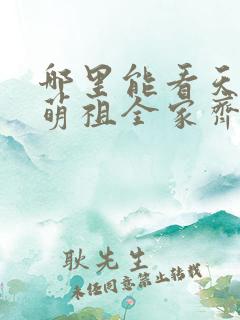 哪里能看天
萌祖全家齐
耿先生
未经同意禁止转载